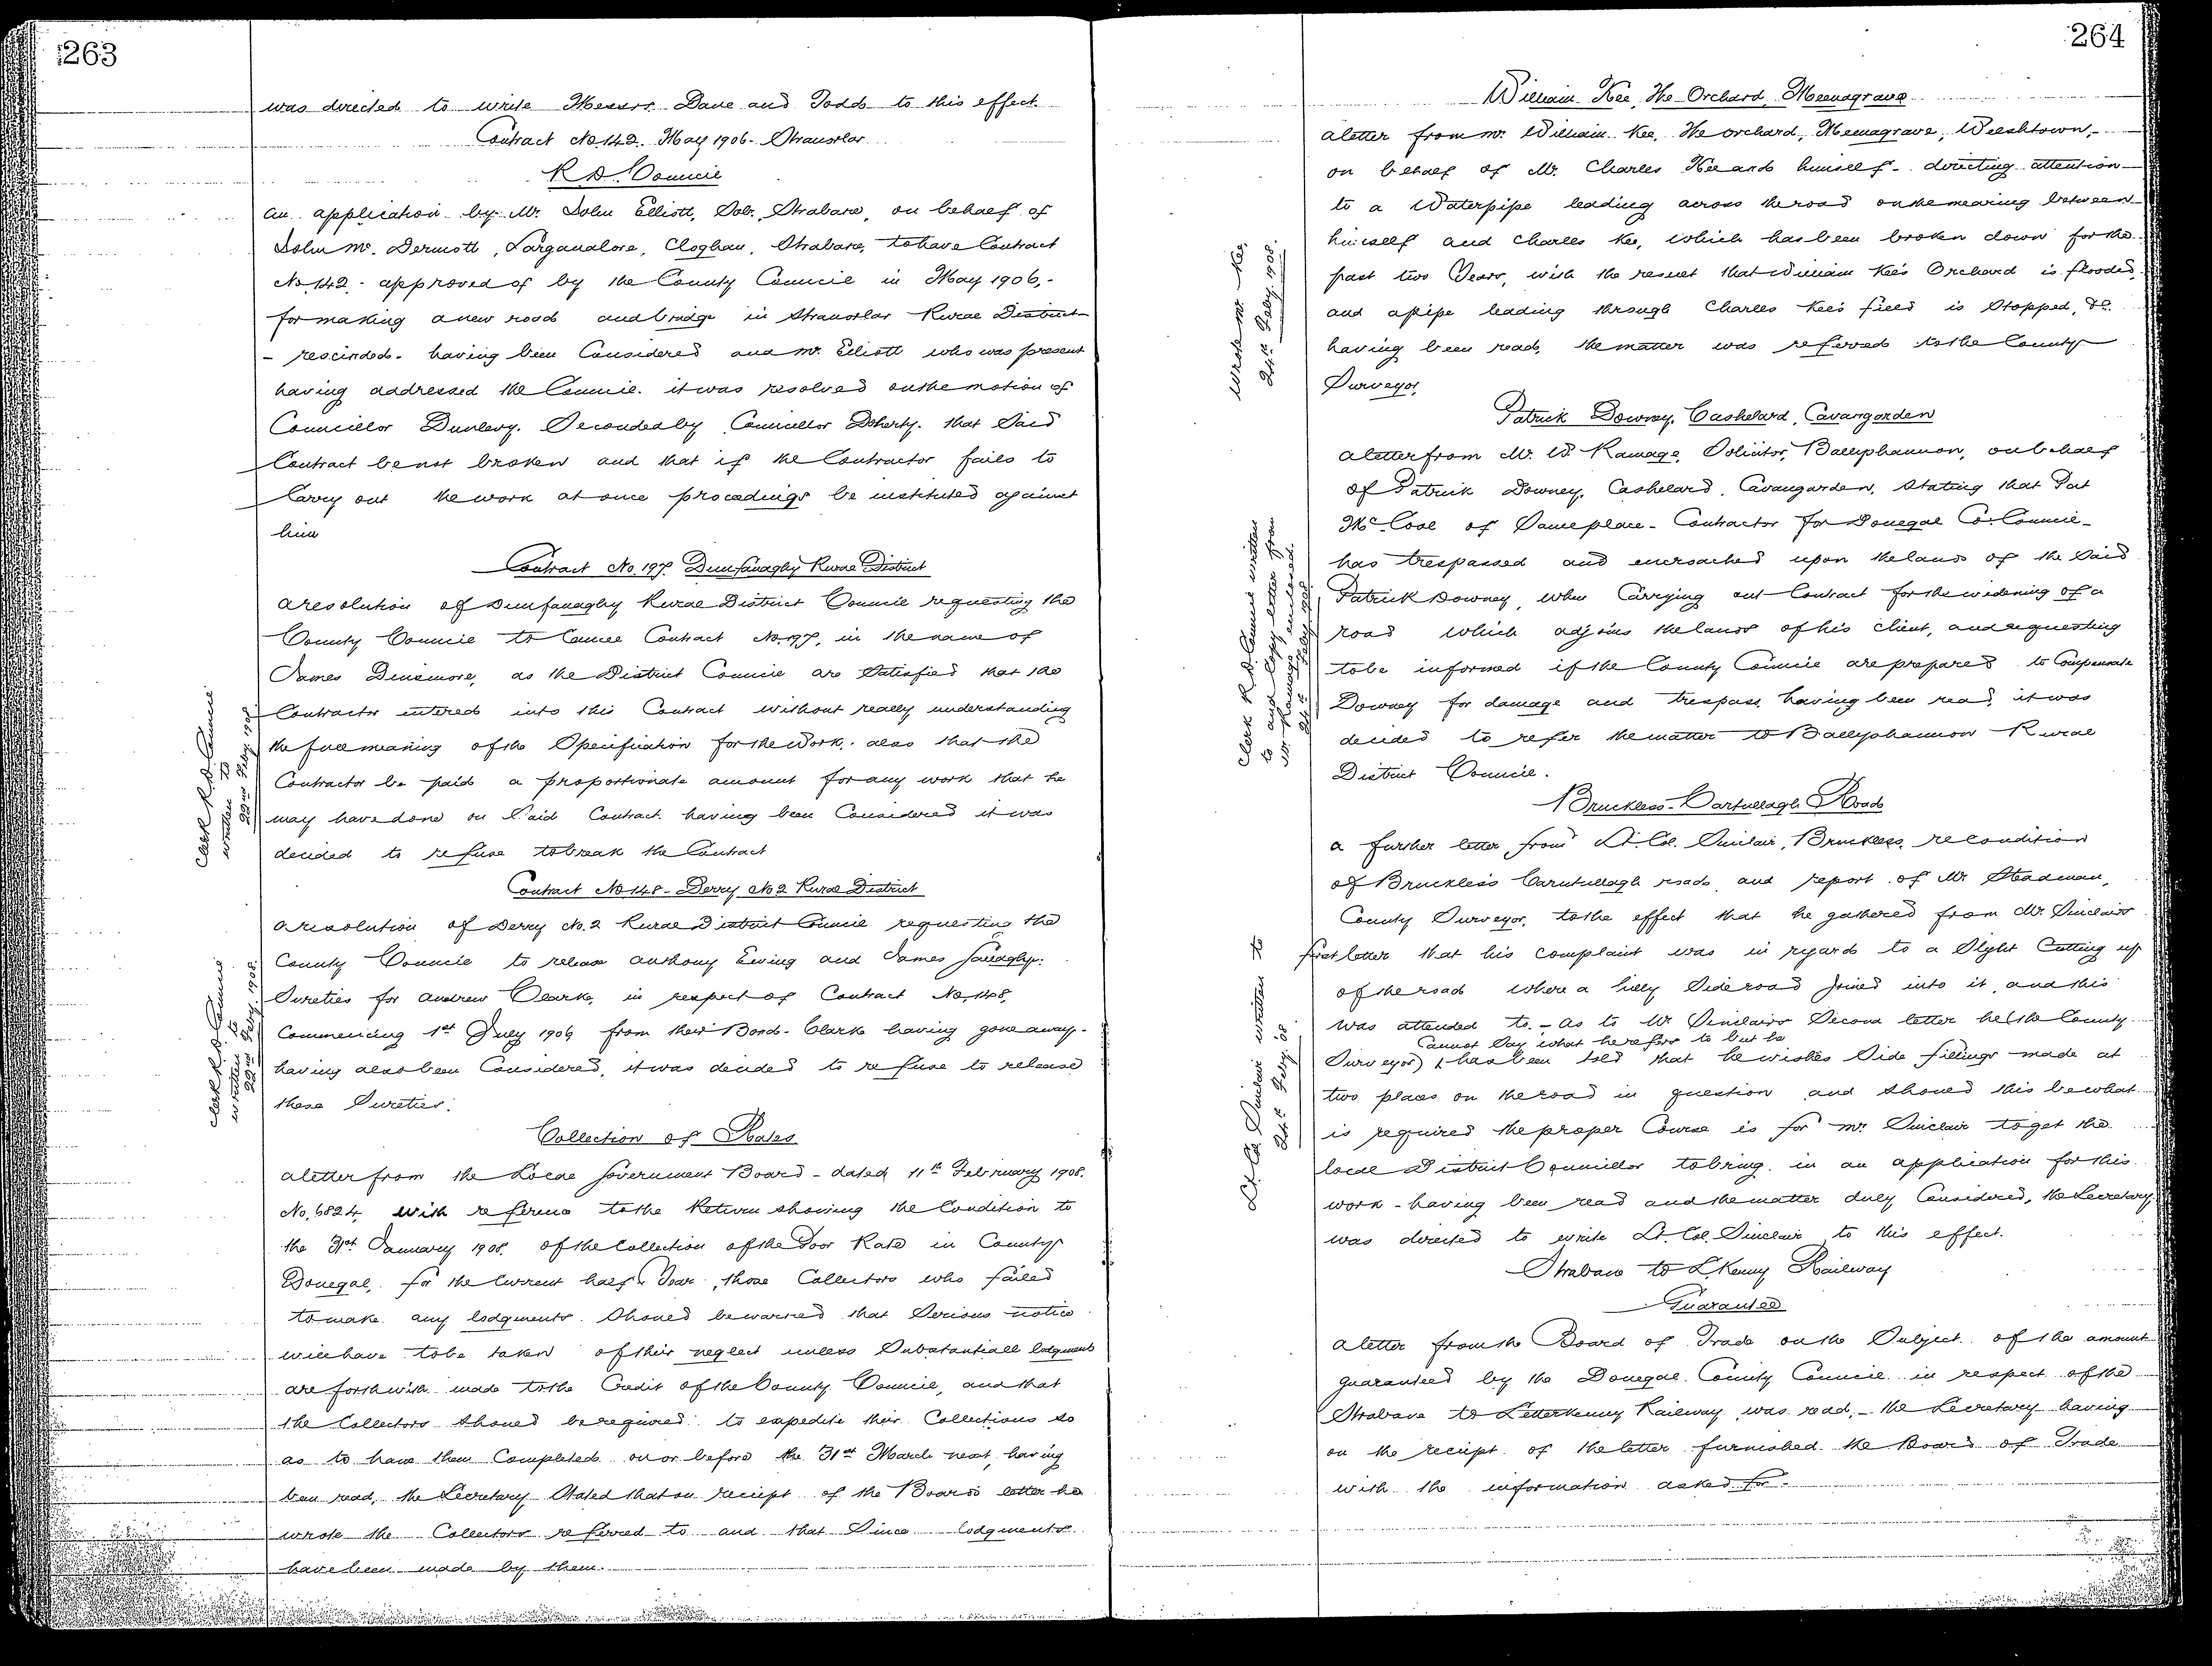 263
was directed to write Messrs. Dane and Todd to this effect.
Contract No. 142. May 1906. Stranorlar
R D. Council
An application by Mr. John Elliott, Solr., Strabane, on behalf of
John Mc. Dermott, Cloghan, Strabane, to have Contract
No. 142 - approved of by the County Council in May 1906, -
for making a new road and bridge in Stranorlar Rural District
- rescinded - having been Considered and Mr. Elliott who was present
having addressed the Council. it was resolved on the motion of
Councillor Dunlevy. Seconded by Councillor Doherty. that Said
Contract be not broken and that if the Contractor fails to
Carry out the work at once proceedings be instituted against
him
Contract No. 197. Dunfanaghy Rural District
a resolution of Dunfanaghy Rural District Council requesting the
County Council to Cancel Contract No. 197, in the name of
James Dinsmore, as the District Council are Satisfied that the
Contractor entered into this Contract without really understanding
the full meaning of the Specification for the Work. also that the
Contractor be paid a proportionate amount for any work that he
may have done on Said Contract. having been Considered it was
decided to refuse to break the Contract
Clerk R. D. Council
written to
22nd Feby. 1908
Contract No 148 - Derry No 2 Rural District
a resolution of Derry No. 2 Rural District Council requesting the
County Council to release Anthony Ewing and James Gallagher.
Sureties for Andrew Clarke, in respect of Contract No. 148,
Commencing 1st July 1906 from their Bond - Clarke having gone away -
having also been Considered, it was decided to refuse to release
these Sureties.
Clerk R. D. Council
written to
22nd Feby. 1908.
Collection of Rates
a letter from the Local Government Board - dated 11th February 1908.
No. 6824, with reference to the Return showing the Condition to
the 31st January 1908. of the Collection of the Poor Rate in County
Donegal, for the Current half Year, those Collectors who failed
to make any lodgments. Should be warned that Serious notice
will have to be taken of their neglect unless Substantiall lodgments
are forthwith made to the Credit of the County Council, and that
the Collectors should be required to expedite their Collections so
as to have them Completed on or before the 31st March next, having
been read, the Secretary Stated that on receipt of the Boards letter he
wrote the Collectors referred to and that Since lodgments
have been made by them.
264
William Kee, The Orchard, Meenagrave
a letter from Mr. William Kee, The Orchard, Meenagrave, Welshtown, -
on behalf of Mr. Charles Kee and himself - directing attention
to a Waterpipe leading across the road on the mearing between
himself and Charles Kee, which has been broken down for the
past two Years, with the result that William Kee's Orchard is flooded,
and a pipe leading through Charles Kee's field is Stopped, &c.
having been read, the matter was referred to the County
Surveyor.
Wrote Mr. Kee,
24th Feby. 1908.
Patrick Downey, Cashelard, Cavangarden
a letter from Mr. W. Ramage, Solicitor, Ballyshannon, on behalf
of Patrick Downey, Cashelard, Cavangarden, Stating that Pat
McCool of Same place - Contractor for Donegal Co. Council -
has trespassed and encroached upon the lands of the Said
Patrick Downey, when Carrying out Contract for the widening of a
road which adjoins the lands of his client, and requesting
to be informed if the County Council are prepared to Compensate
Downey for damage and trespass, having been read, it was
decided to refer the matter to Ballyshannon Rural
District Council.
Clerk R. D. Council written
to and copy letter from
Mr. Ramage enclosed.
24th Feby. 1908.
Bruckless - Carntullagh Road
a further letter from Lt. Col. Sinclair, Bruckless, re condition
of Bruckless Carntullagh road, and report of Mr Steadman,
County Surveyor, to the effect that he gathered from Mr. Sinclairs
first letter that his complaint was in regard to a Slight Cutting up
of the road where a hilly Side road joined into it, and this
was attended to. - As to Mr Sinclairs Second letter he (the County
Cannot Say what he refers to but he
Surveyor) has been told that he wishes Side fillings made at
two places on the road in question and should this be what
is required the proper Course is for Mr Sinclair to get the
local District Councillor to bring in an application for this
work - having been read and the matter duly Considered, the Secretary
was directed to write Lt. Col. Sinclair to this effect.
Lt. Col. Sinclair written to
24th Feby. 08.
Strabane to L.Kenny Railway
Guarantee
a letter from the Board of Trade on the Subject of the amount
guaranteed by the Donegal County Council in respect of the
Strabane to Letterkenny Railway was read, - the Secretary having
on the receipt of the letter furnished the Board of Trade
with the information asked for.